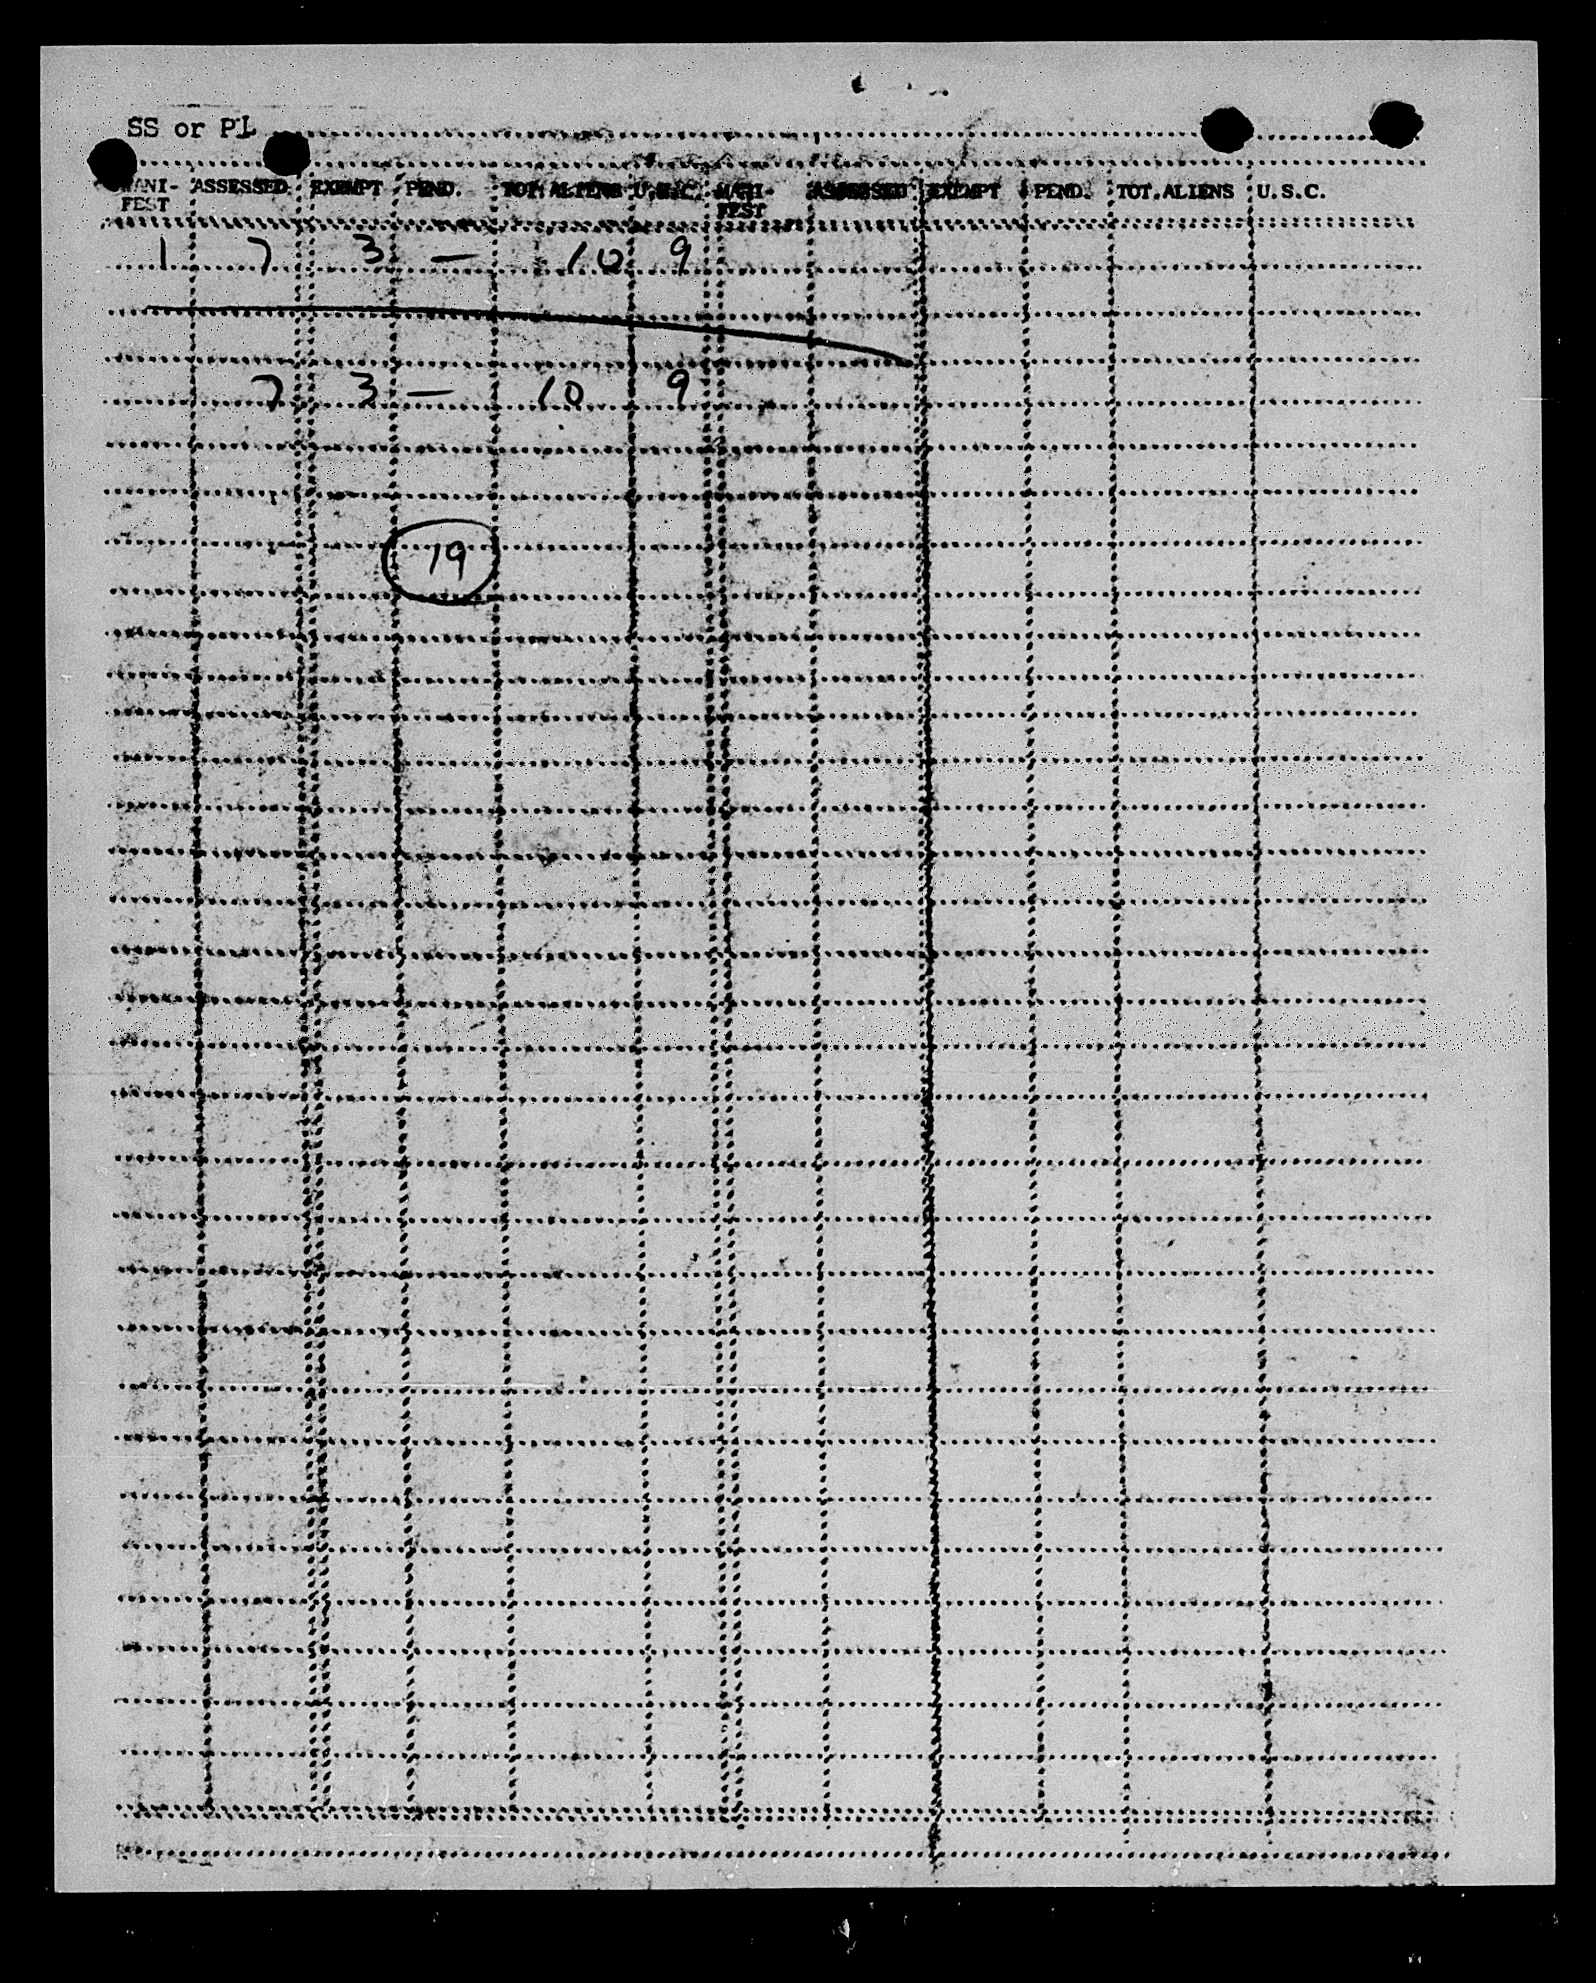 SS or PL
MANI- ASSESSED EXEMPT PEND. TOT. ALIENS U.S.C. MANI- ASSESSED EXEMPT PEND. TOT. ALIENS U.S.C.
FEST FEST
1 7 3 — 10 9
7 3 — 10 9
19